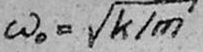 ω₀ = √k/m